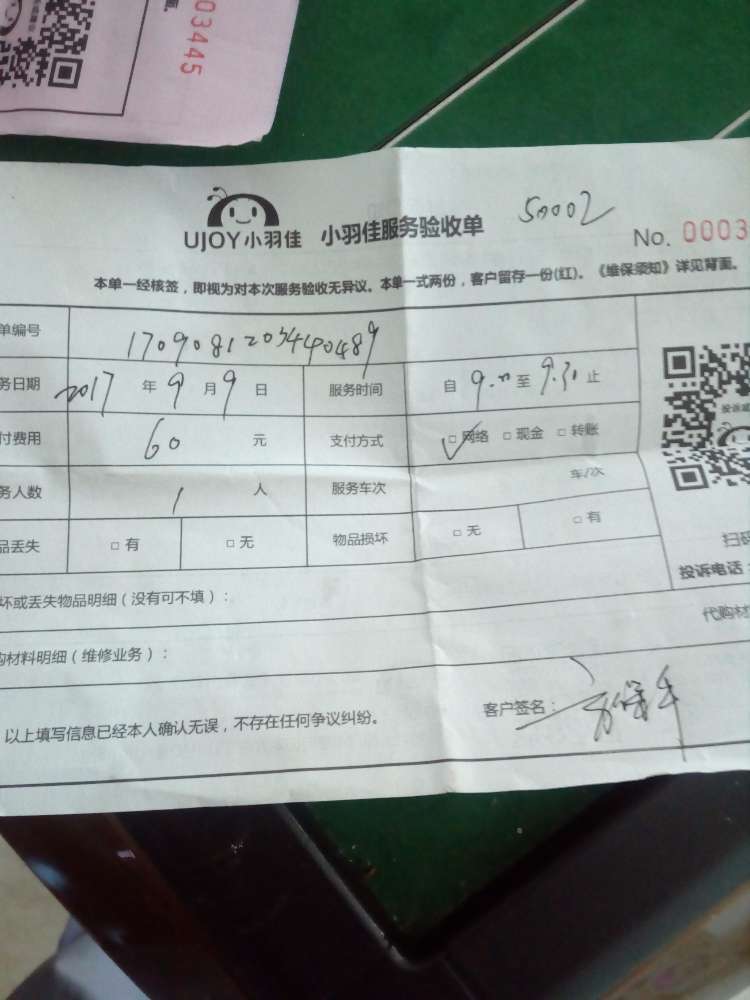 03445
UJOY小羽佳 小羽佳服务验收单 50002
No. 0003
本单一经核签，即视为对本次服务验收无异议。本单一式两份，客户留存一份(红)。《维保须知》详见背面。
单编号 1709081203440489
务日期 2017 年 9 月 9 日 服务时间 自 9. 至 9.30 止
付费用 60 元 支付方式 □网络 □现金 □转账
务人数 1 人 服务车次 车/次
品丢失 □有 □无 物品损坏 □无 □有
扫码
投诉电话：
坏或丢失物品明细（没有可不填）：
代购材
购材料明细（维修业务）：
以上填写信息已经本人确认无误，不存在任何争议纠纷。 客户签名：